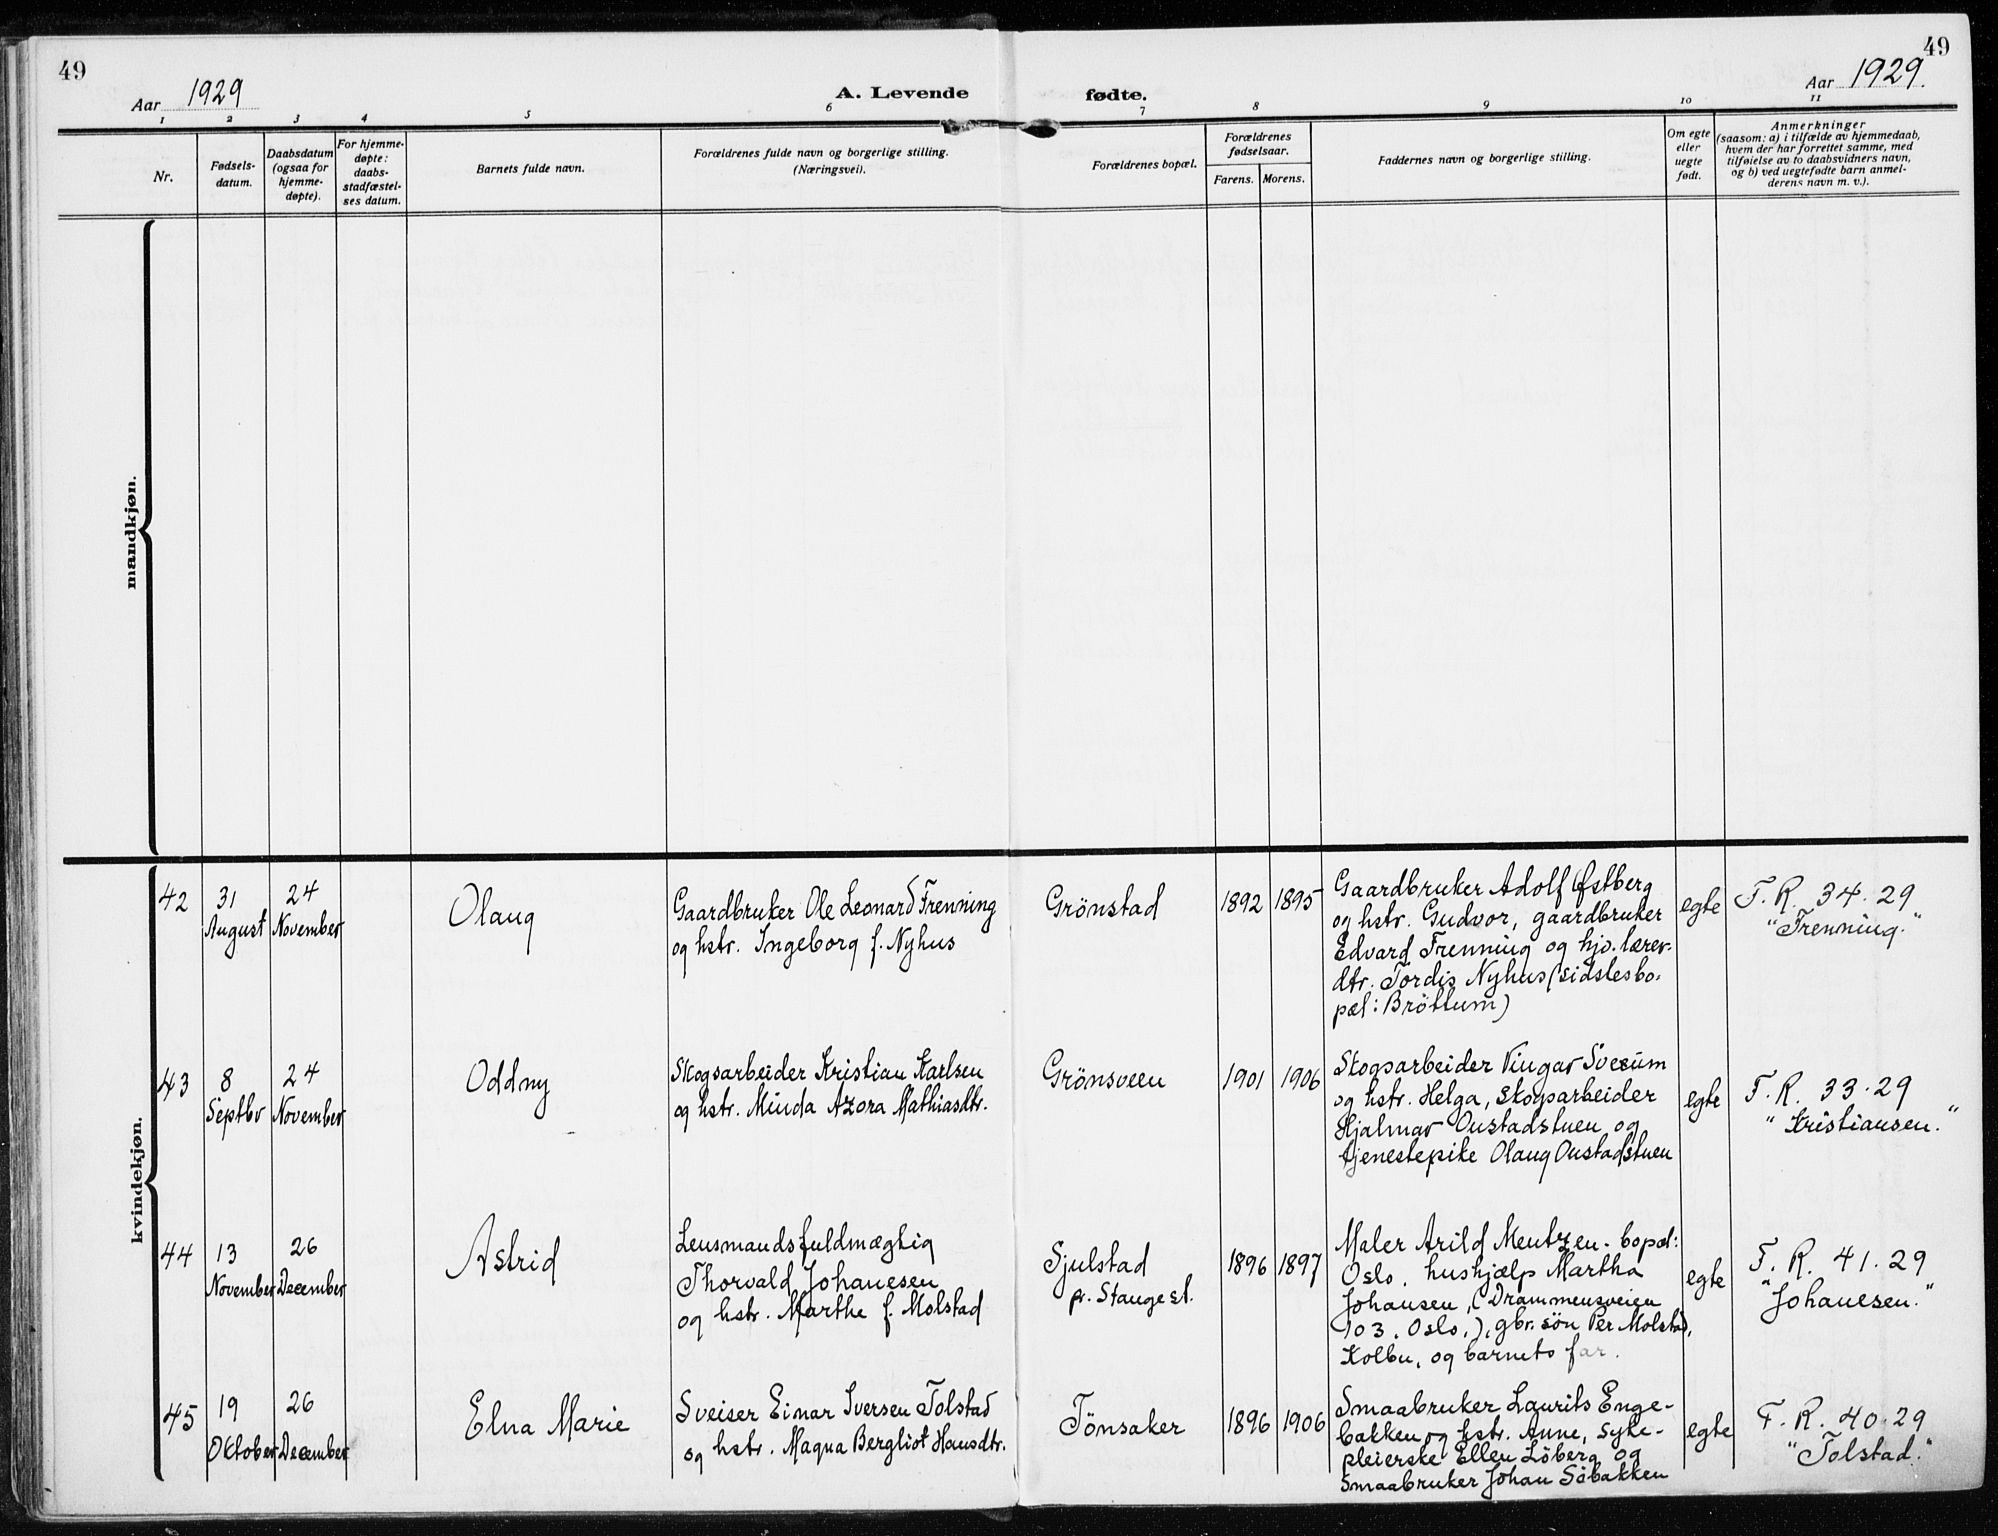 49
49
Aar 1929
A. Levende fødte.
Aar 1929.
1 2 3 4 5 6 7 8 9 10 11
Nr.
Fødsels-
datum.
Daabsdatum
(ogsaa for
hjemme-
døpte).
For hjemme-
døpte:
daabs-
stadfæstel-
ses datum.
Barnets fulde navn.
Forældrenes fulde navn og borgerlige stilling.
(Næringsvei).
Forældrenes bopæl.
Forældrenes
fødselsaar.
Farens. Morens.
Faddernes navn og borgerlige stilling.
Om egte
eller
uegte
født.
Anmerkninger
(saasom: a) i tilfælde av hjemmedaab,
hvem der har forrettet samme, med
tilføielse av to daabsvidners navn,
og b) ved uegtefødte barn anmel-
derens navn m. v.).
mandkjøn.
kvindekjøn.
42
31
August
24
November
Olaug
Gaardbruker Ole Leonard Frenning
og hstr. Ingeborg f. Nyhus
Grönstad
1892 1895
Gaardbruker Adolf Østberg
og hstr. Gudvor, gaardbruker
Edvard Frenning og hjv. lærer-
dtr. Tordis Nyhus (sidstes bo-
pæl: Bröttum)
egte
F. R. 34.29
"Frenning."
43
8
Septbr
24
November
Oddny
Skogsarbeider Kristian Karlsen
og hstr. Minda Azora Mathiasdtr.
Grönsveen
1901 1906
Skogsarbeider Vingar Sveum
og hstr. Helga, skogsarbeider
Hjalmar Oustadstuen og
tjenestepike Olaug Oustadstuen
egte
F. R. 33.29
"Kristiansen."
44
13
November
26
December
Astrid
Lensmandsfuldmægtig
Thorvald Johanesen
og hstr. Marthe f. Molstad
Sjulstad
pr. Stange st.
1896 1897
Maler Arild Mentzen - bopæl:
Oslo, hushjælp Martha
Johansen, (Drammensveien
103, Oslo.), gbr. søn Per Molstad,
Kolbu, og barnets far.
egte
F. R. 41.29
"Johanesen."
45
19
Oktober
26
December
Elna Marie
Sveiser Einar Iversen Tolstad
og hstr. Magna Bergliot Hansdtr.
Tönsaker
1896 1906
Smaabruker Laurits Enge-
bakken og hstr. Anne, syke-
pleierske Ellen Löberg og
Smaabruker Johan Söbakken
egte
F. R. 40.29
"Tolstad."